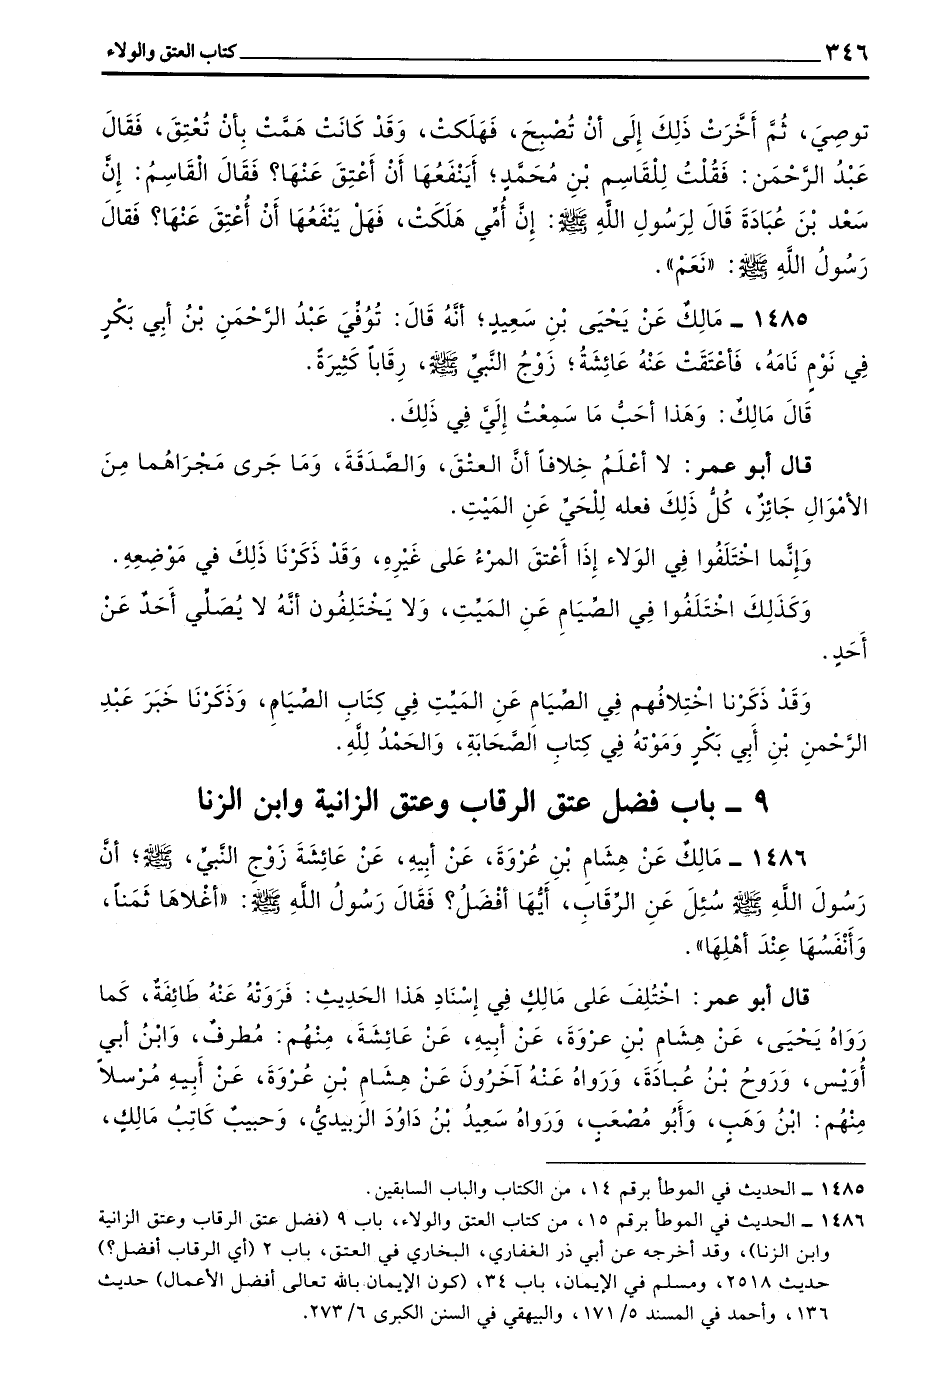 ٣٤٦ كتاب العتق والولاء
توصِيَ، ثُمَّ أَخَّرَتْ ذَلِكَ إِلَى أنْ تُصْبِحَ، فَهَلَكتْ، وَقَدْ كَانَتْ هَمَّتْ بِأنْ تُعْتِقَ، فَقَالَ
عَبْدُ الرَّحْمَنِ: فَقُلْتُ لِلْقَاسِمِ بْنِ مُحَمَّدٍ؛ أَيَنْفَعُهَا أَنْ أَعْتِقَ عَنْهَا؟ فَقَالَ الْقَاسِمُ: إِنَّ
سَعْد بْنَ عُبَادَةَ قَالَ لِرَسُولِ اللَّهِ ﷺ: إِنَّ أُمِّي هَلَكَتْ، فَهَلْ يَنْفَعُهَا أَنْ أُعْتِقَ عَنْهَا؟ فَقالَ
رَسُولُ اللَّهِ ﷺ: «نَعَمْ».
١٤٨٥ ـ مَالِكٌ عَنْ يَحْيَى بْنِ سَعِيدٍ؛ أنَّهُ قَالَ: تُوُفِّيَ عَبْدُ الرَّحْمَنِ بْنُ أبِي بَكْرٍ
فِي نَوْمٍ نَامَهُ، فَأعْتَقَتْ عَنْهُ عَائِشَةُ؛ زَوْجُ النَّبِيِّ ﷺ، رِقَاباً كَثِيرَةً.
قَالَ مَالِكٌ: وَهَذا أحَبُّ مَا سَمِعْتُ إِلَيَّ فِي ذَلِكَ.
قال أبو عمر: لا أعْلَمُ خِلافاً أنَّ العتْقَ، وَالصَّدَقَةَ، وَمَا جَرى مَجْرَاهُما مِنَ
الأمْوَالِ جَائِزٌ، كُلُّ ذَلِكَ فعله لِلْحَيِّ عَنِ المَيْتِ.
وَإِنَّما اخْتَلَفُوا فِي الوَلاء إِذَا أَعْتقَ المرْءُ عَلى غَيْرِهِ، وَقَدْ ذَكَرْنَا ذَلِكَ في مَوْضِعِهِ.
وَكَذَلِكَ اخْتَلَفُوا فِي الصِّيَامِ عَنِ المَيِّتِ، وَلا يَخْتَلِفُون أنَّهُ لا يُصَلِّي أحَدٌ عَنْ
أَحَدٍ.
وَقَدْ ذَكَرْنا اخْتِلافُهم فِي الصِّيَامِ عَنِ المَيِّتِ فِي كِتَابِ الصِّيَامِ، وَذَكَرْنَا خَبَرَ عَبْدِ
الرَّحْمنِ بْنِ أَبِي بَكْرٍ وَمَوْتهُ فِي كِتابِ الصَّحَابَةِ، وَالحَمْدُ لِلَّهِ.
٩ ـ باب فضل عتق الرقاب وعتق الزانية وابن الزنا
١٤٨٦ ـ مَالِكٌ عَنْ هِشَامِ بْنِ عُرْوَةَ، عَنْ أبِيهِ، عَنْ عَائِشَةَ زَوْجِ النَّبِيِّ، ﷺ؛ أنَّ
رَسُولَ اللَّهِ ﷺ سُئِلَ عَنِ الرِّقَابِ، أيُّهَا أفْضَلُ؟ فَقَالَ رَسُولُ اللَّهِ ﷺ: «أغْلاهَا ثَمَناً،
وَأَنْفَسُهَا عِنْدَ أهْلِهَا».
قال أبو عمر: اخْتُلِفَ عَلى مَالِكٍ فِي إِسْنَادِ هَذَا الحَدِيثِ: فَرَوَتْهُ عَنْهُ طَائِفَةٌ، كَما
رَوَاهُ يَحْيَى، عَنْ هِشَامِ بْنِ عرْوَةَ، عَنْ أبيهِ، عَنْ عَائِشَةَ، مِنْهُم: مُطرفٌ، وَابْنُ أبي
أُوَيْس، وَرَوحُ بْنُ عُبادَةَ، وَرَواهُ عَنْهُ آخَرُونَ عَنْ هِشَامِ بْنِ عُرْوَةَ، عَنْ أَبِيهِ مُرْسلاً
مِنْهُم: ابْنُ وَهَبٍ، وَأَبُو مُصْعَبٍ، وَرَواهُ سَعِيدُ بْنُ دَاوُدَ الزبيديُّ، وَحبيبٌ كَاتِبُ مَالِكٍ،
١٤٨٥ ـ الحديث في الموطأ برقم ١٤، من الكتاب والباب السابقين.
١٤٨٦ ـ الحديث في الموطأ برقم ١٥، من كتاب العتق والولاء، باب ٩ (فضل عتق الرقاب وعتق الزانية
وابن الزنا)، وقد أخرجه عن أبي ذر الغفاري، البخاري في العتق، باب ٢ (أي الرقاب أفضل؟)
حديث ٢٥١٨، ومسلم في الإيمان، باب ٣٤، (كون الإيمان بالله تعالى أفضل الأعمال) حديث
١٣٦، وأحمد في المسند ٥/ ١٧١، والبيهقي في السنن الكبرى ٦/ ٢٧٣.